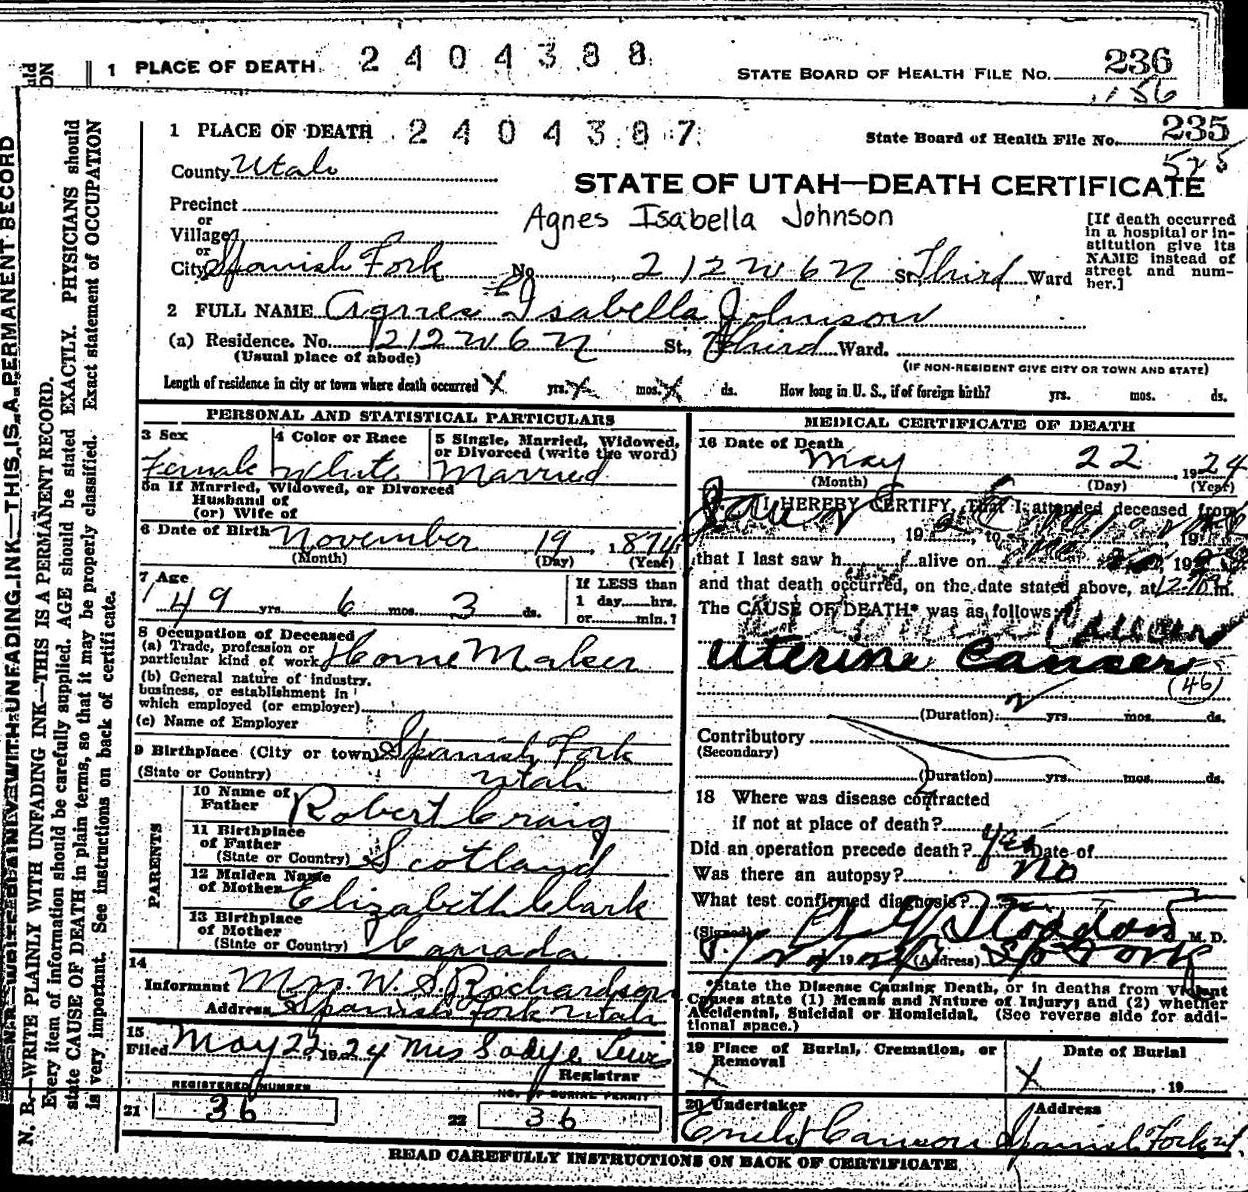 1 PLACE OF DEATH 2404388
STATE BOARD OF HEALTH FILE NO. 236
156
1 PLACE OF DEATH 2404387
State Board of Health File No. 235
525
County Utah
STATE OF UTAH—DEATH CERTIFICATE
Precinct
or
Village
Agnes Isabella Johnson
[If death occurred in a hospital or in-
stitution give its
NAME instead of
street and num-
ber.]
or
City Spanish Fork No. 212 W 6 N St. Third Ward
2 FULL NAME Agnes Isabella Johnson
(a) Residence. No. 212 W 6 N St., Third Ward.
(Usual place of abode)
(IF NON-RESIDENT GIVE CITY OR TOWN AND STATE)
Length of residence in city or town where death occurred X yrs. X mos. X ds. How long in U. S., if of foreign birth? yrs. mos. ds.
PERSONAL AND STATISTICAL PARTICULARS
3 Sex
Female
4 Color or Race
White
5 Single, Married, Widowed,
or Divorced (write the word)
Married
5a If Married, Widowed, or Divorced
Husband of
(or) Wife of
6 Date of Birth November 19, 1874
(Month) (Day) (Year)
7 Age
49 yrs. 6 mos. 3 ds.
If LESS than
1 day......hrs.
or......min.?
8 Occupation of Deceased
(a) Trade, profession or
particular kind of work Home Maker
(b) General nature of industry,
business, or establishment in
which employed (or employer)
(c) Name of Employer
9 Birthplace (City or town) Spanish Fork
(State or Country) Utah
PARENTS
10 Name of
Father Robert Craig
11 Birthplace
of Father
(State or Country) Scotland
12 Maiden Name
of Mother Elizabeth Clark
13 Birthplace
of Mother
(State or Country) Canada
14
Informant Mrs. W. S. Richardson
Address Spanish Fork Utah
15
Filed May 22 1924 Mrs Sadye Lewis
Registrar
REGISTERED NUMBER
21 36
NO. OF BURIAL PERMIT
22 36
MEDICAL CERTIFICATE OF DEATH
16 Date of Death
May 22 1924
(Month) (Day) (Year)
I HEREBY CERTIFY, That I attended deceased from
, 19 , to , 19
that I last saw h alive on , 19
and that death occurred, on the date stated above, at m.
The CAUSE OF DEATH* was as follows:
Cancer
Uterine Cancer
(46)
(Duration) 2 yrs. mos. ds.
Contributory
(Secondary)
(Duration) yrs. mos. ds.
18 Where was disease contracted
if not at place of death?
Did an operation precede death? yes Date of
Was there an autopsy? no
What test confirmed diagnosis?
(Signed) Stoddard M. D.
(Address) Sp Fork
*State the Disease Causing Death, or in deaths from Violent
Causes state (1) Means and Nature of Injury; and (2) whether
Accidental, Suicidal or Homicidal. (See reverse side for addi-
tional space.)
19 Place of Burial, Cremation, or
Removal
X
Date of Burial
X , 19
20 Undertaker
Address
Spanish Fork ut.
READ CAREFULLY INSTRUCTIONS ON BACK OF CERTIFICATE
N. B.—WRITE PLAINLY WITH UNFADING INK—THIS IS A PERMANENT RECORD.
Every item of information should be carefully supplied. AGE should be stated EXACTLY. PHYSICIANS should
state CAUSE OF DEATH in plain terms, so that it may be properly classified. Exact statement of OCCUPATION
is very important. See instructions on back of certificate.